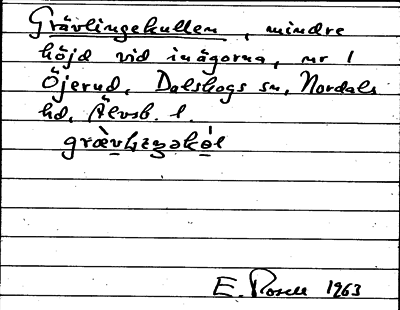 Grävlingekullen, mindre
höjd vid inägorna, nr 1
Öjerud, Dalskogs sn, Nordals
hd, Älvsb. l.
E. Rosell 1963